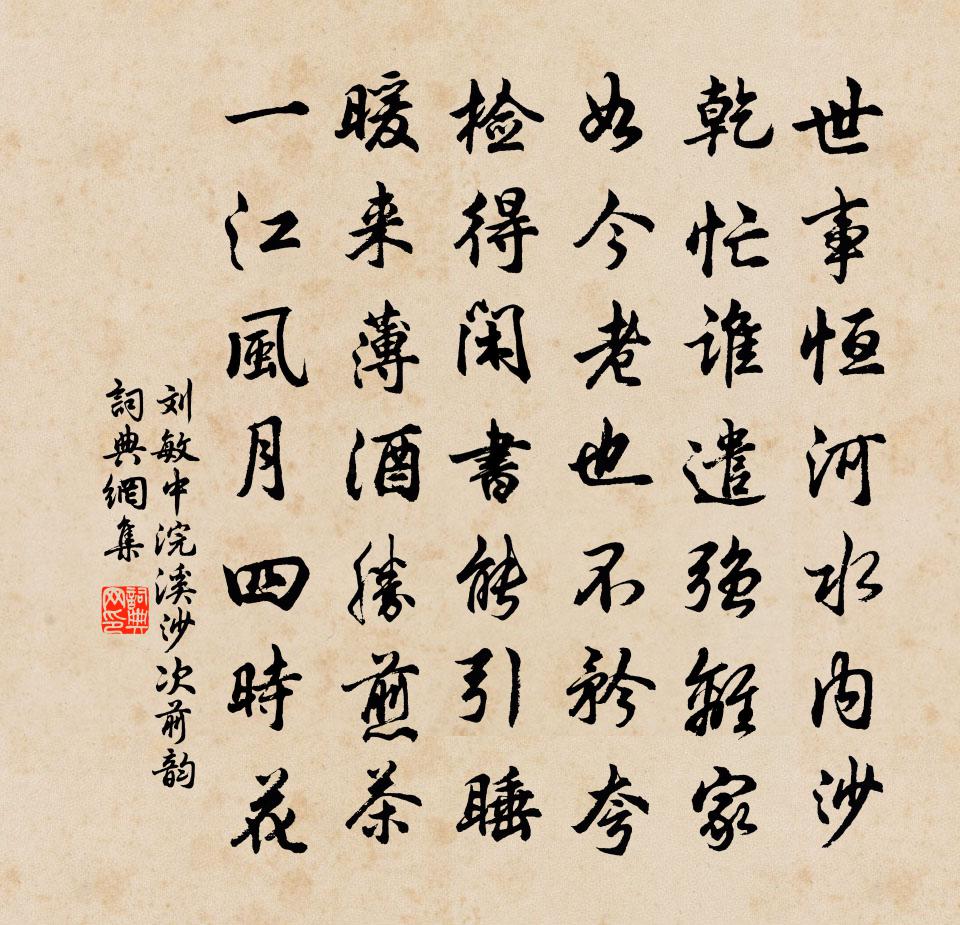 世事恒河水内沙
乾忙谁遣强離家
如今老也不矜夸
检得闲書能引睡
暖来薄酒勝煎茶
一江風月四時花
刘敏中浣溪沙次前韵
詞典網集
詞典网印